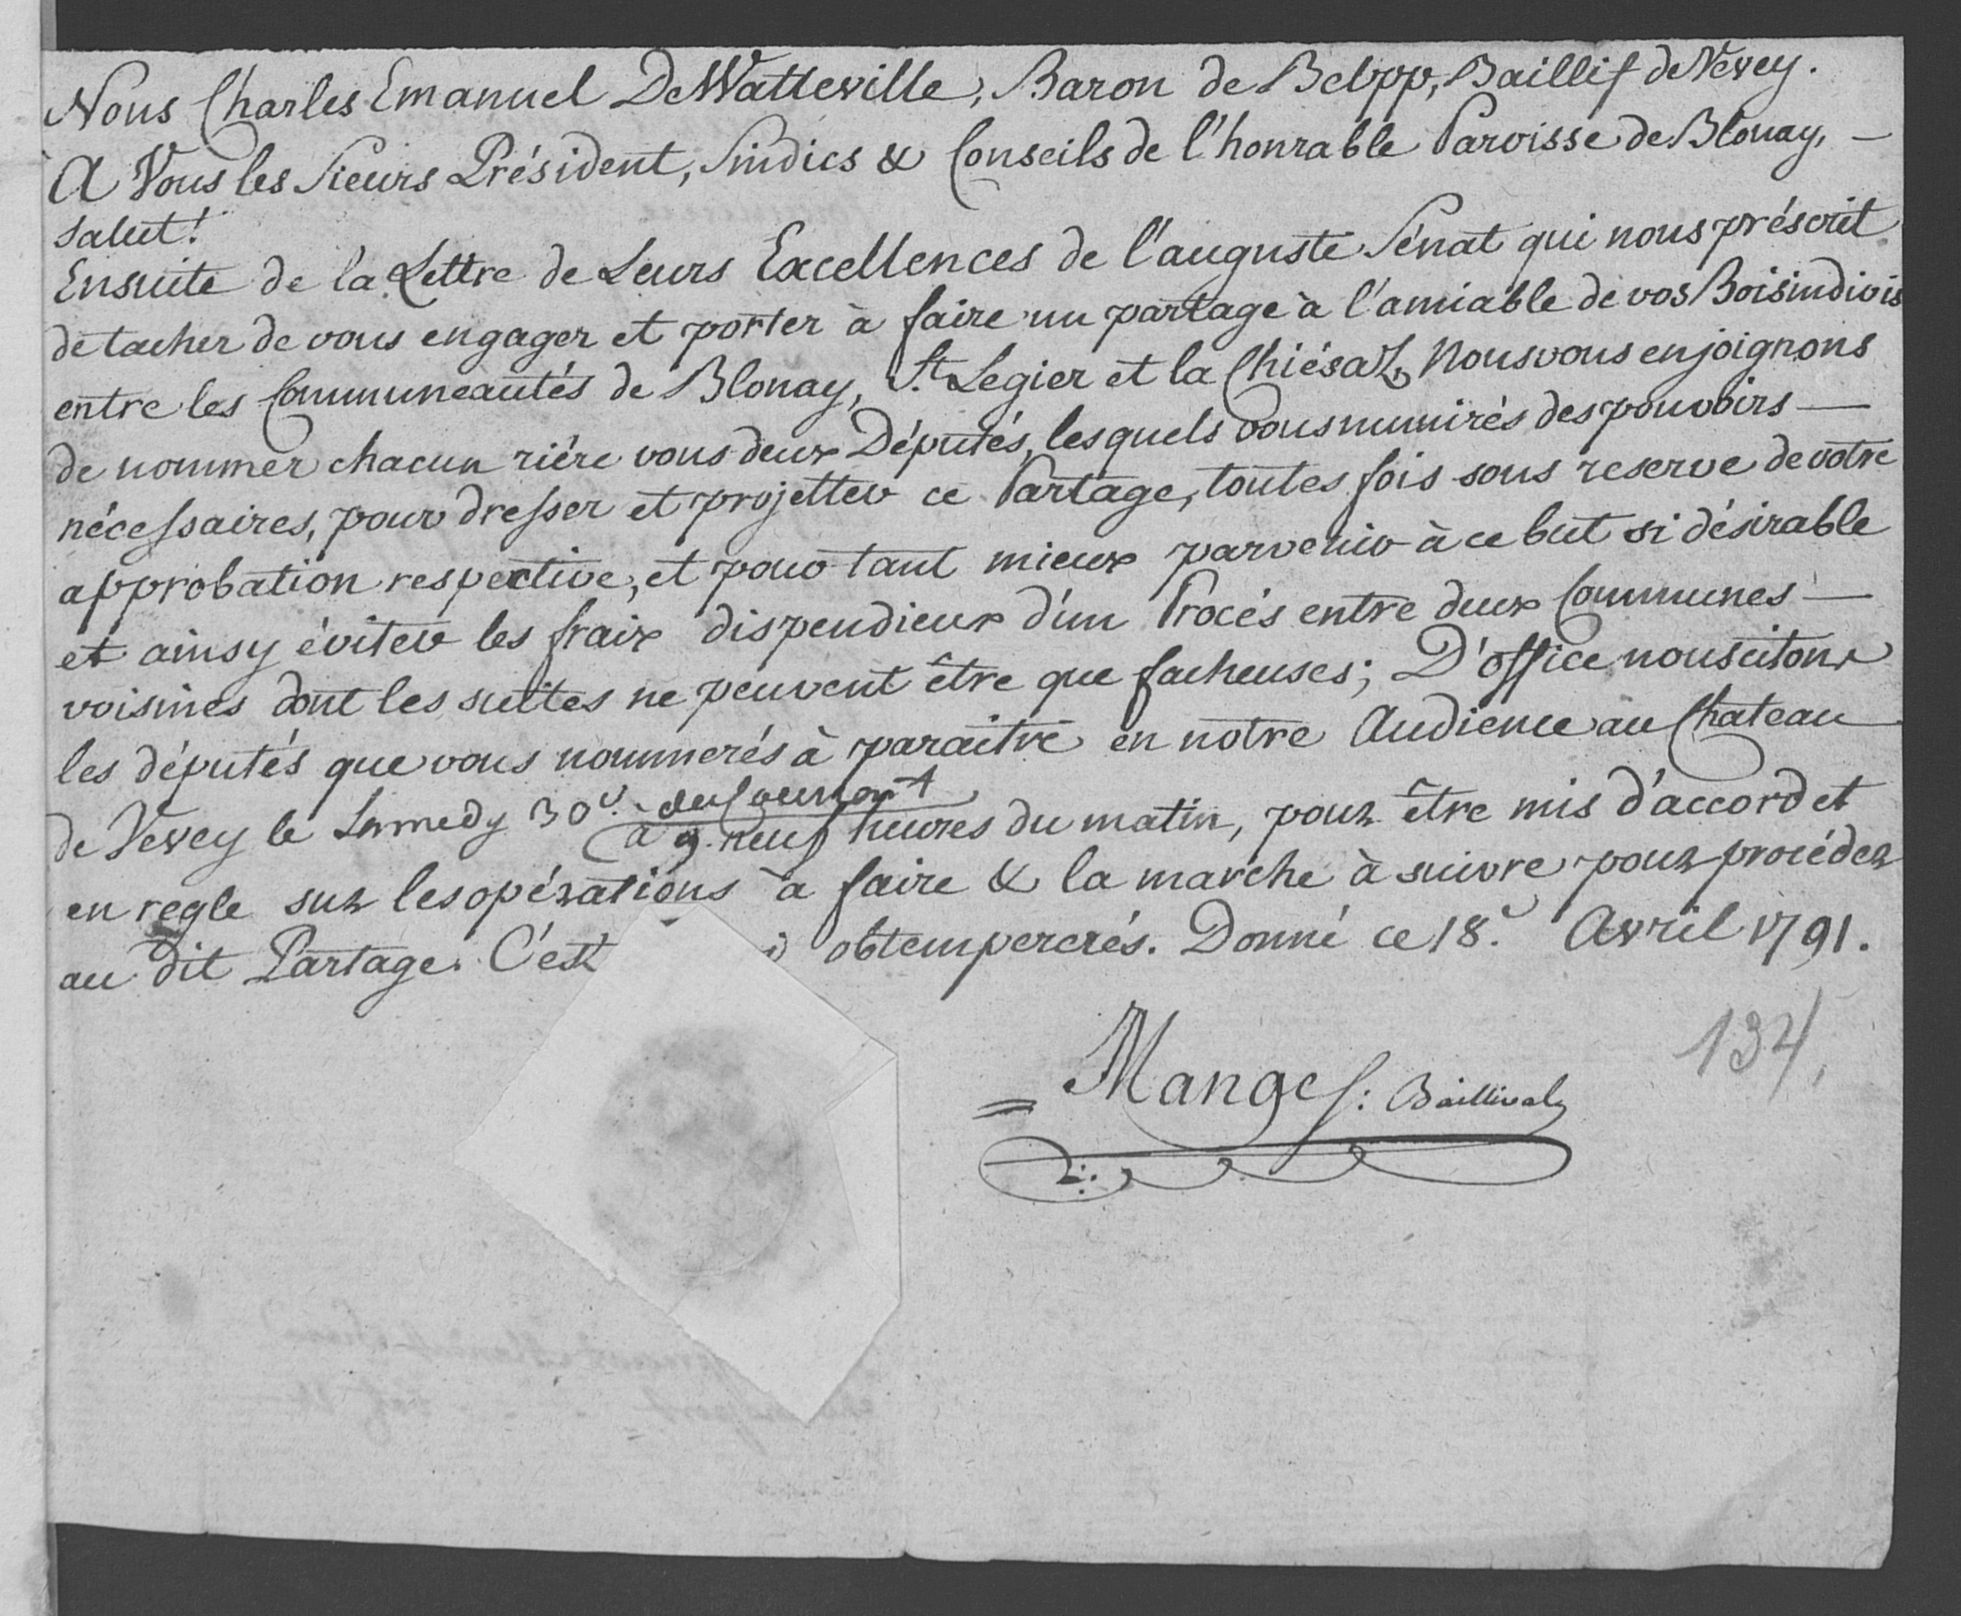 Nous Charles Emanuel DeWatteville, Baron de Belpp, Baillif de Vevey.
A Vous les Sieurs Président, Sindics & Conseils de l'honrable Paroisse de Blonay, —
Salut!
Ensuite de la Lettre de Leurs Excellences de l'auguste Sénat qui nous préscrit
de tacher de vous engager et porter à faire un partage à l'amiable de vos Bois indivis
entre les Communeautés de Blonay, St. Legier et la Chiésaz, Nous vous enjoignons
de nommer chacun riére vous deux Députés, lesquels vous munirés des pouvoirs —
nécessaires, pour dresser et projetter ce Partage, toutes fois sous reserve de votre
approbation respective, et pour tant mieux parvenir à ce but si désirable
et ainsy éviter les fraix dispendieux d'un Procés entre deux Communes —
voisines dont les suittes ne peuvent être que facheuses; D'office nous citons
les députés que vous nommerés à paraitre en notre Audience au Chateau
du Courrant
de Vevey le Samedy 30e. à 9. neuf heures du matin, pour être mis d'accord et
en regle sur les opérations à faire & la marche à suivre pour procéder
au dit Partage. C'est obtempererés. Donné ce 18e. Avril 1791.
Mange S: Baillival
134,